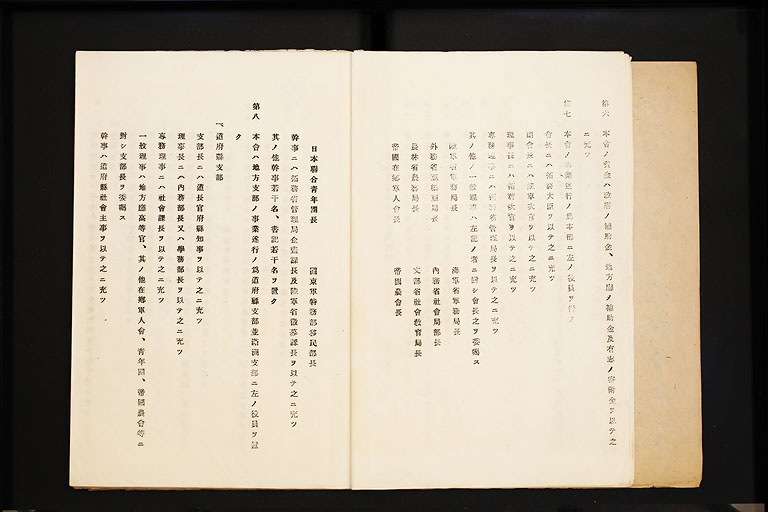 第六 本會ノ資金ハ政府ノ補助金、地方廳ノ補助金及有志ノ寄附金ヲ以テ之
ニ充ツ
第七 本會ノ事業遂行ノ爲本部ニ左ノ役員ヲ置ク
會長ニハ拓務大臣ヲ以テ之ニ充ツ
副會長ニハ陸軍次官ヲ以テ之ニ充ツ
理事長ニハ拓務次官ヲ以テ之ニ充ツ
專務理事ニハ拓務省管理局長ヲ以テ之ニ充ツ
其ノ他ノ一般理事ハ左記ノ者ニ對シ會長之ヲ委囑ス
陸軍省軍務局長 海軍省軍務局長
外務省亞細亞局長 內務省社會局部長
農林省農務局長 文部省社會敎育局長
帝國在鄕軍人會長 帝國農會長
日本聯合青年團長 關東軍特務部移民部長
幹事ニハ拓務省管理局企畫課長及陸軍省徵募課長ヲ以テ之ニ充ツ
其ノ他幹事若干名、書記若干名ヲ置ク
第八 本會ハ地方支部ノ事業遂行ノ爲道府縣支部並滿洲支部ニ左ノ役員ヲ置
ク
一、道府縣支部
支部長ニハ道長官府縣知事ヲ以テ之ニ充ツ
理事長ニハ內務部長又ハ學務部長ヲ以テ之ニ充ツ
專務理事ニハ社會課長ヲ以テ之ニ充ツ
一般理事ハ地方廳高等官、其ノ他在鄕軍人會、青年團、帝國農會等ニ
對シ支部長ヲ委囑ス
幹事ハ道府縣社會主事ヲ以テ之ニ充ツ